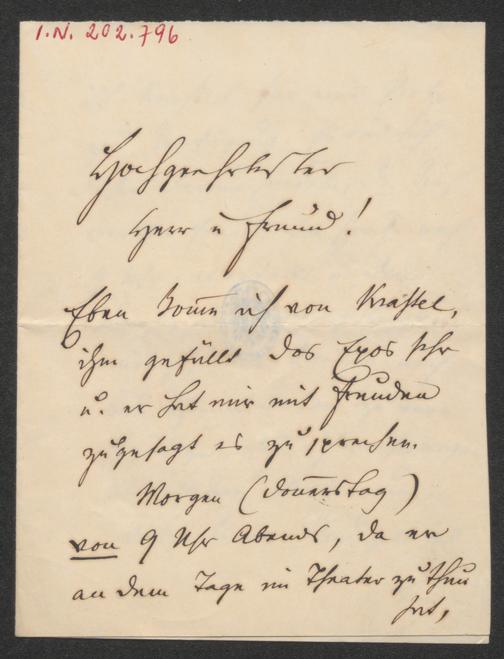 I.N. 202.796
Hochgeehrtester
Herr u Freund!
Eben komme ich von Krastel,
ihm gefällt das Epos sehr
u. er hat mir mit Freuden
zugesagt es zu sprechen.
Morgen (Donnerstag)
von 9 Uhr Abends, da er
an dem Tage im Theater zu thun
hat,